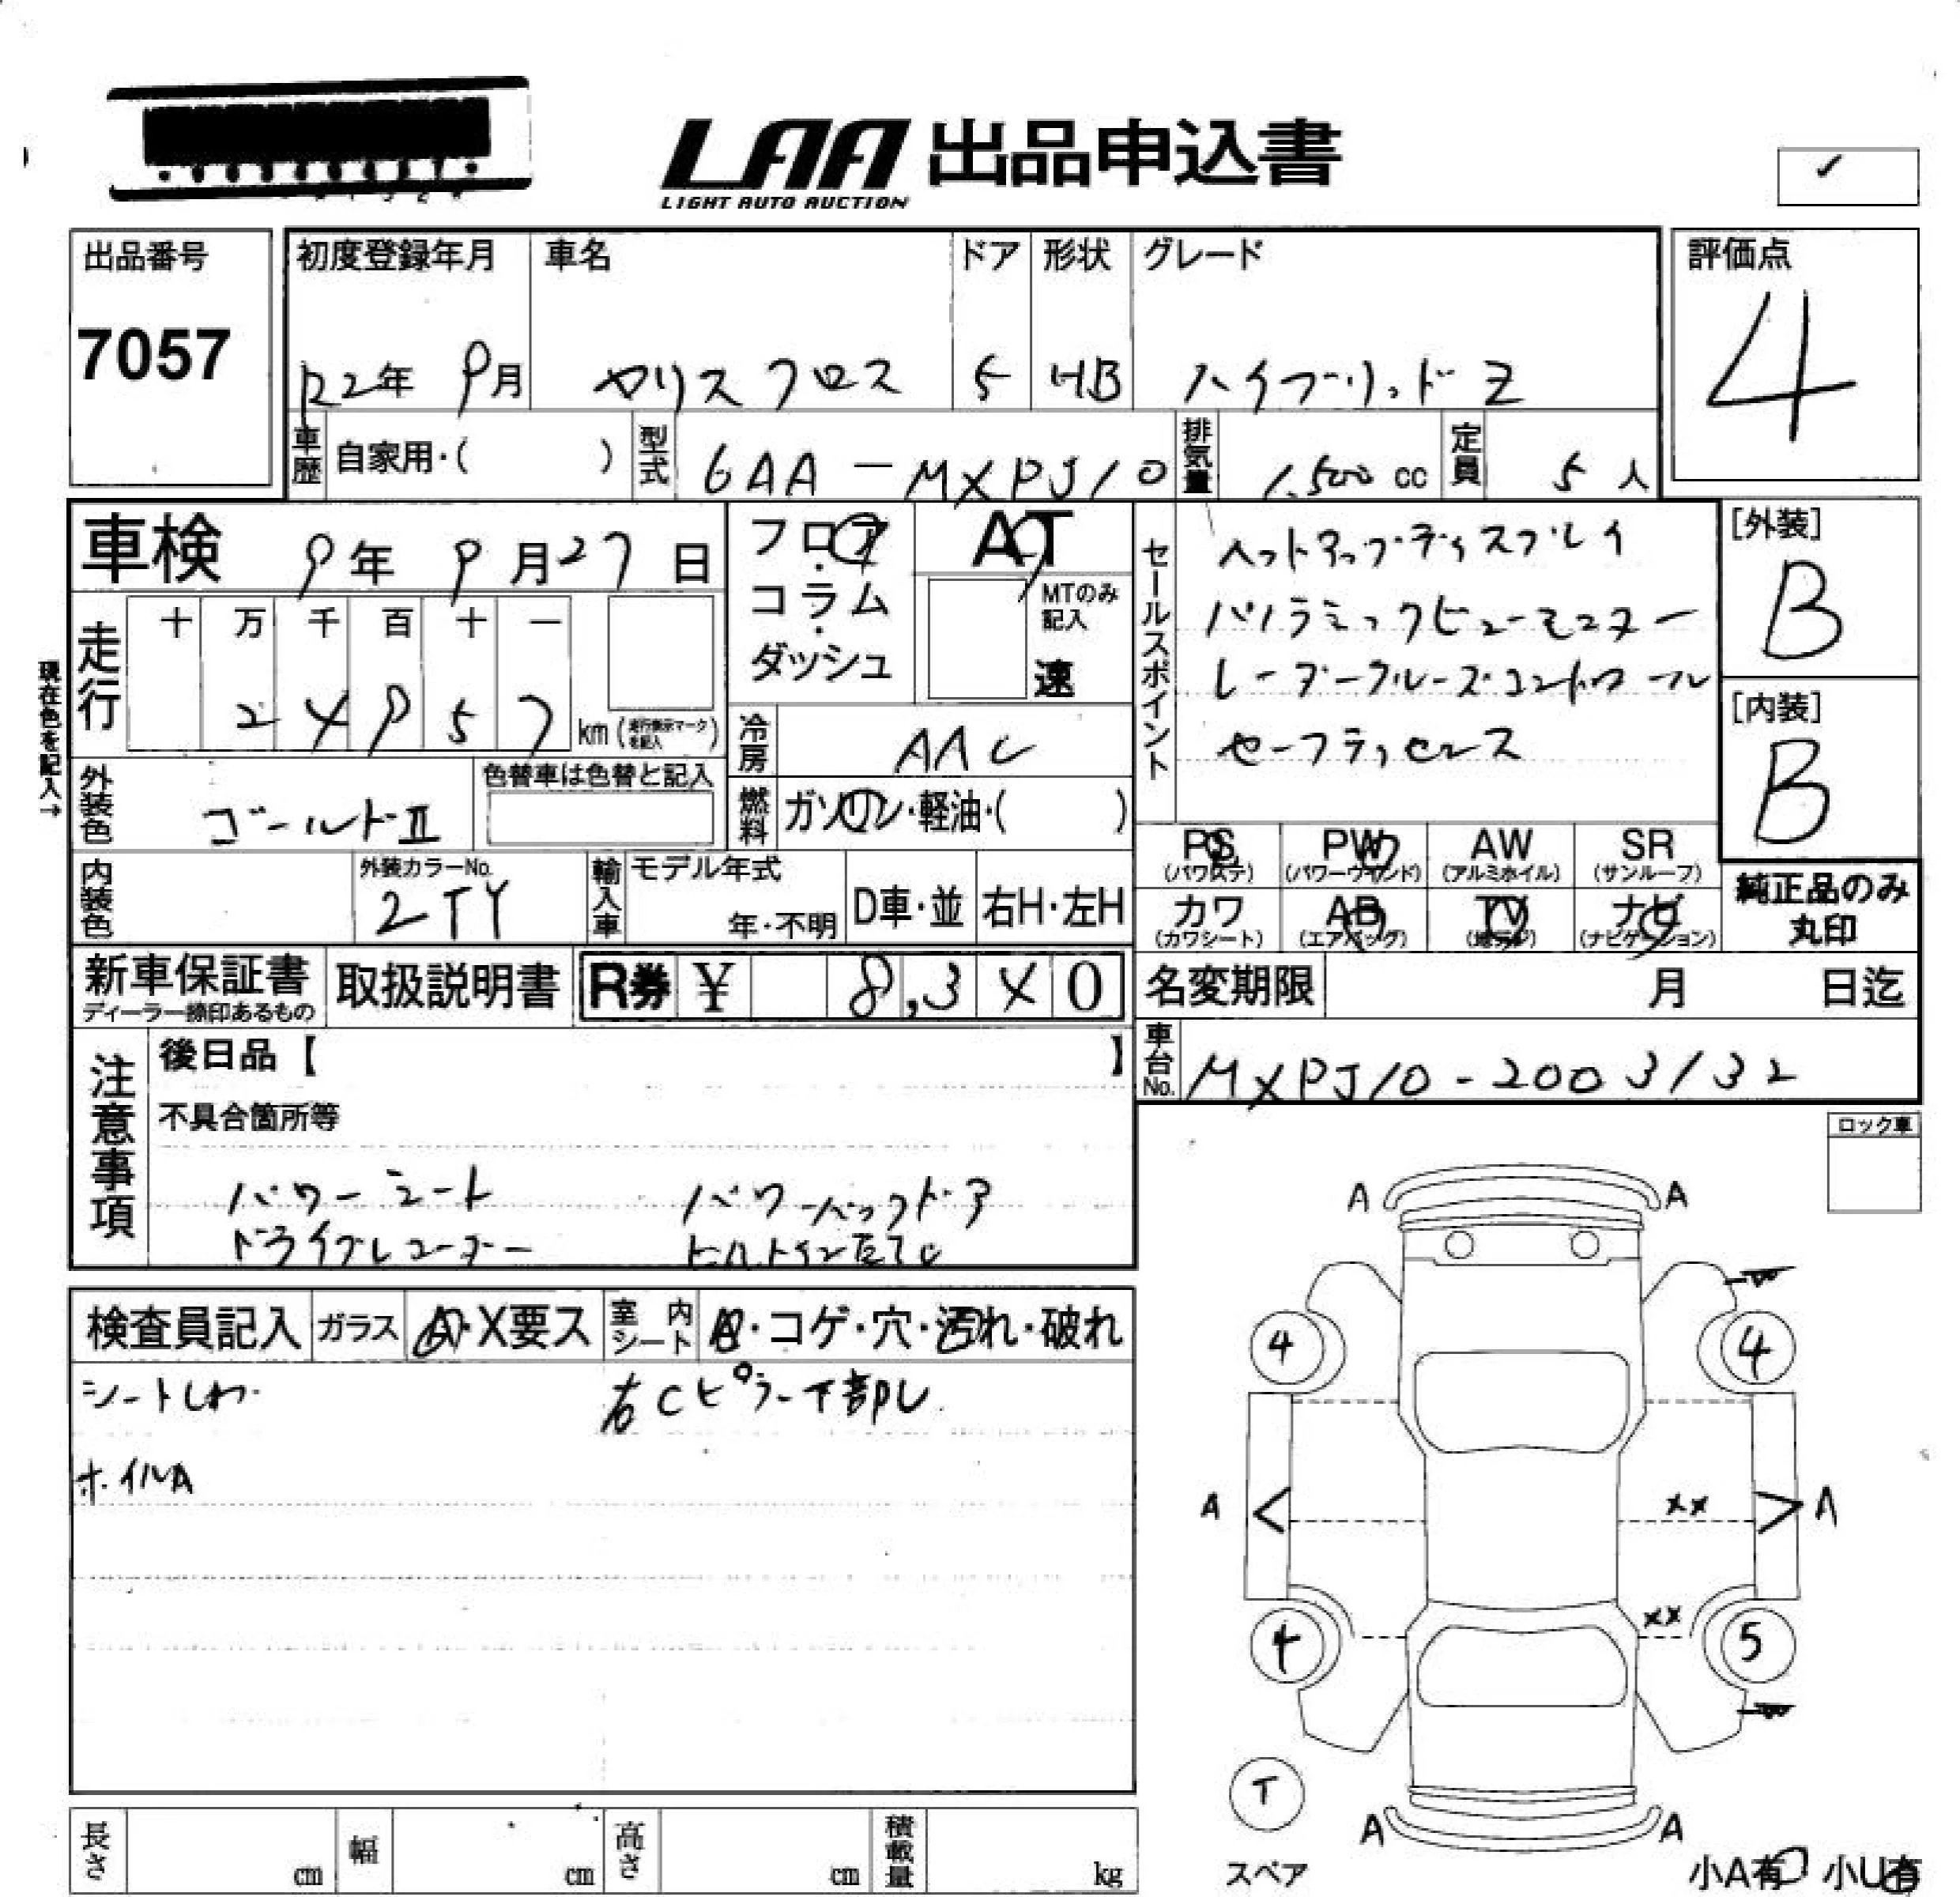 LAA 出品申込書
LIGHT AUTO AUCTION
✓
出品番号 初度登録年月 車名 ドア 形状 グレード 評価点
7057 R2年 9月 ヤリスクロス 5 HB ハイブリッドZ 4
車歴 自家用・( ) 型式 6AA-MXPJ10 排気量 1,500 cc 定員 5人
車検 9年 9月27日
フロア・コラム・ダッシュ
AT
MTのみ記入
速
セールスポイント
ヘットアップディスプレイ
パノラミックビューモニター
レーダークルーズコントロール
セーフティセンス
[外装]
B
[内装]
B
現在色を記入→
走行 十 万 千 百 十 一
2 4 9 5 7 km (走行表示マークを記入)
冷房 AAC
外装色 ゴールドII 色替車は色替と記入
燃料 ガソリン・軽油・( )
内装色 外装カラーNo. 2TY
輸入車 モデル年式 年・不明 D車・並 右H・左H
PS (パワステ) PW (パワーウインド) AW (アルミホイル) SR (サンルーフ)
カワ (カワシート) AB (エアバッグ) TV (地デジ) ナビ (ナビゲーション)
純正品のみ丸印
新車保証書 ディーラー捺印あるもの 取扱説明書 R券 ¥ 8,340
名変期限 月 日迄
車台No. MXPJ10-2003132
注意事項
後日品【 】
不具合箇所等
パワーシート パワーバックドア
ドライブレコーダー
ロック車
検査員記入 ガラス A・X要ス 室内シート A・コゲ・穴・汚れ・破れ
シートしわ 右Cピラー下部し
ホイルA
A A
4 4
A A
XX
XX
4 5
T
スペア
A A
小A有 小U有
長さ cm 幅 cm 高さ cm 積載量 kg